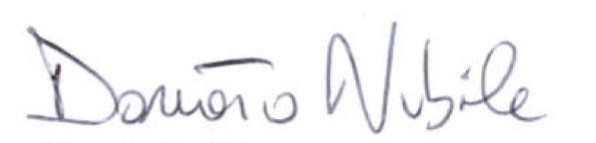 Donato Nubile